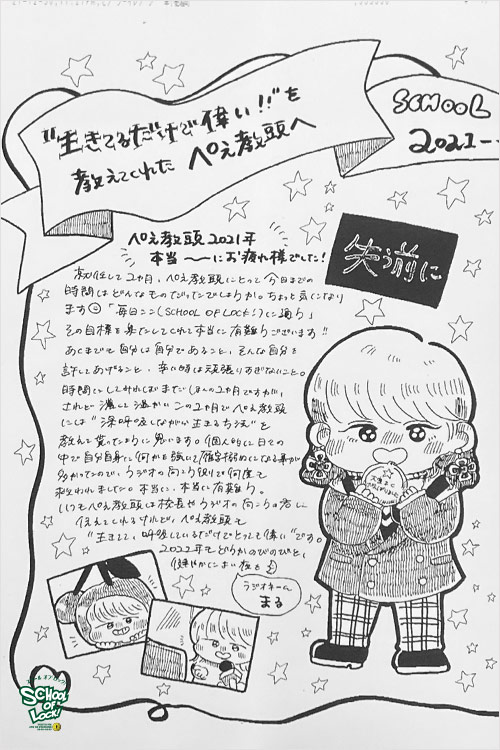 "生きてるだけで偉い!!"を
教えてくれた ぺえ教頭へ
SCHOOL
2021--
ぺえ教頭 2021年
本当〜〜にお疲れ様でした!
失う前に
就任して2ヶ月、ぺえ教頭にとって今日までの
時間はどんなものだったでしょうか。ちょっと気になり
ます☺「毎日ここ(SCHOOL OF LOCK!)に通う」
その目標を果たしてくれて本当に有難うございます!!
あくまでも自分は自分であること、そんな自分を
許してあげること、辛い時は頑張りすぎないこと。
時間にしてみればまだほんの2ヶ月ですが、
されど濃くて温かいこの2ヶ月でぺえ教頭
には"深呼吸しながら生きる方法"を
教えて貰ったように思います。個人的に日々の
中で自分自身に何かを強いて窮屈になる事が
多かったので、ラジオの向こう側で何度も
救われました。本当に、本当に有難う。
いつもぺえ教頭は校長やラジオの向こうの君に
伝えてくれるけれど、ぺえ教頭も
"生きてて、呼吸しているだけでとっても偉い"です。
2022年もどうかのびのびと、
健やかに在れ
ラジオネーム
まる
SCHOOL
OF
LOCK!